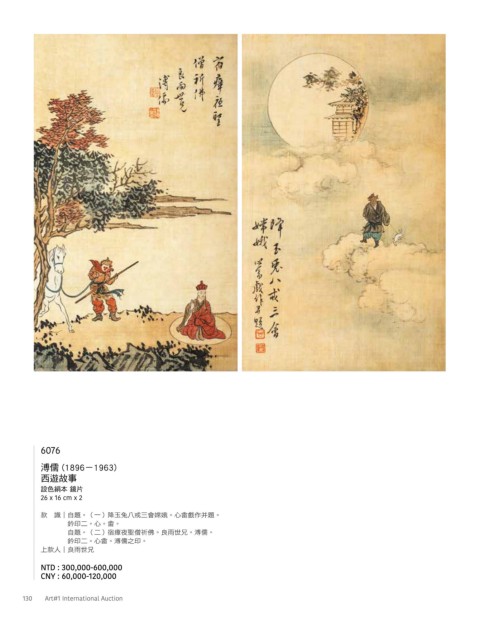 宿廢夜聖
僧祈佛
良雨世兄
溥儒
降玉兎八戒三會
嫦娥 心畬戲作并題
6076
溥儒（1896－1963）
西遊故事
設色絹本 鏡片
26 x 16 cm x 2
款　識｜自題。（一）降玉兔八戒三會嫦娥。心畬戲作并題。
鈐印二。心。畬。
自題。（二）宿廢夜聖僧祈佛。良雨世兄。溥儒。
鈐印二。心畬。溥儒之印。
上款人｜良雨世兄
NTD : 300,000-600,000
CNY : 60,000-120,000
130 Art#1 International Auction